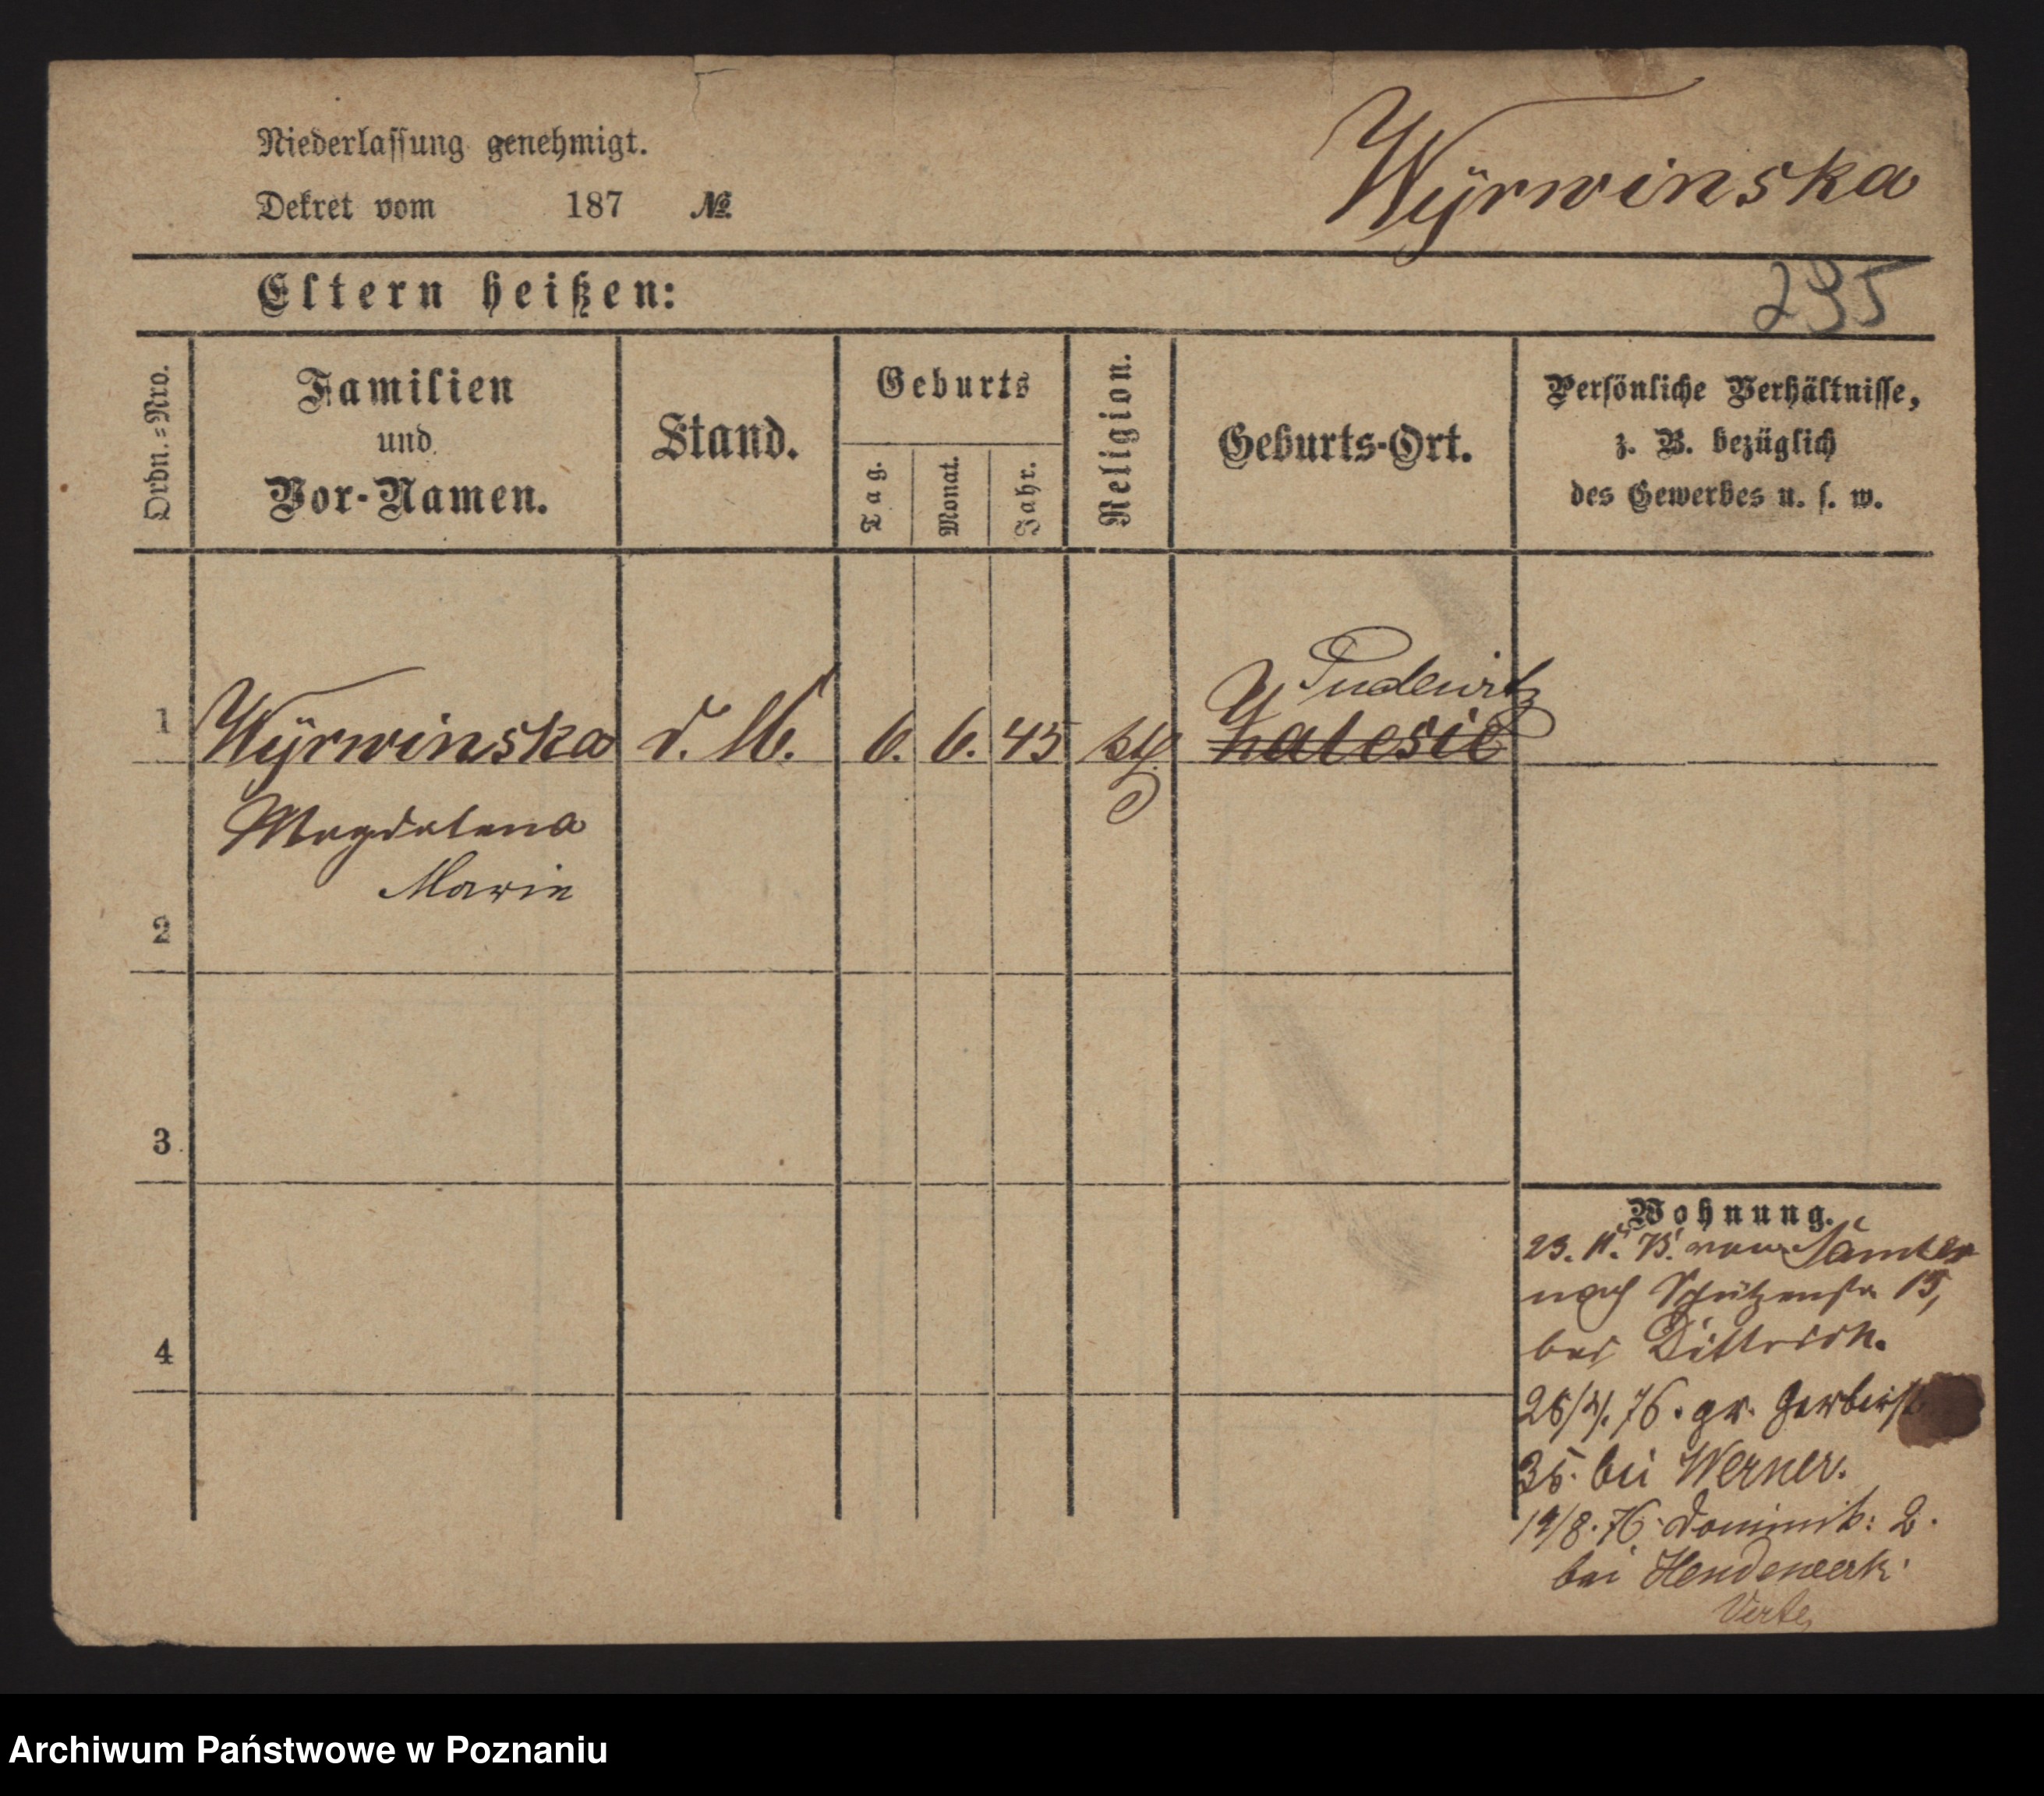 Niederlassung genehmigt.
Dekret vom 187 №
Wÿrwinska
Eltern heißen:
295
Ordn.=Nro.
Familien
und
Vor-Namen.
Stand.
Geburts
Tag.
Monat.
Jahr.
Religion.
Geburts-Ort.
Persönliche Verhältnisse,
z. B. bezüglich
des Gewerbes u. s. w.
Pudewitz
1 Wÿrwinska d. M. 6. 6. 45 kth. Zalesie
Magdalena
Marie
2
3
4
Wohnung.
23. 11. 75. von Samter
nach Schützenstr. 15,
bei Dittrich.
26/4. 76. gr. Gerberst.
35. bei Werner.
19/8. 76. Dominik: 2.
bei Hendewerk.
Verte,
Archiwum Państwowe w Poznaniu